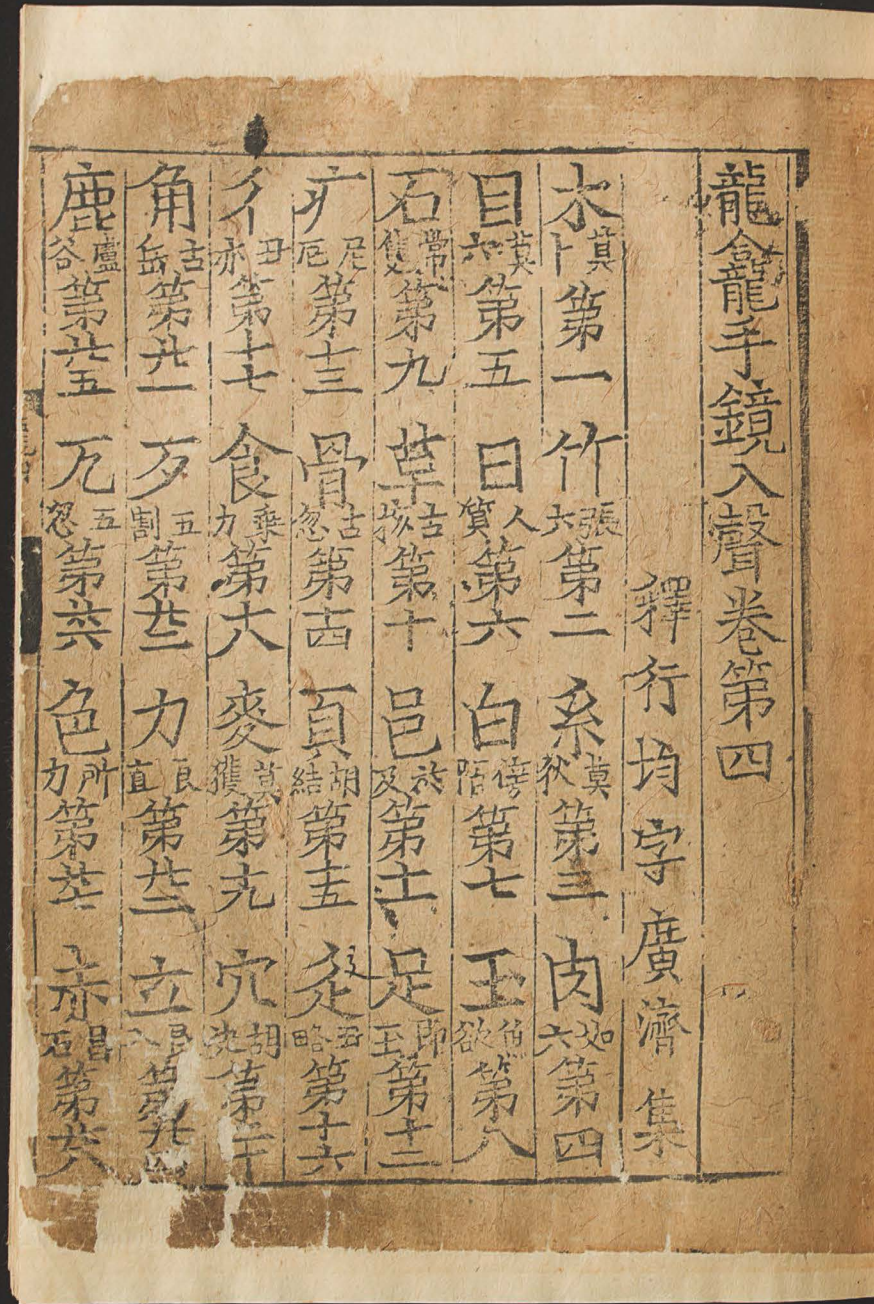 龍龕手鏡入聲卷第四
釋行均字廣濟集
木莫卜第一 竹張六第二 糸莫狄第三 肉如六第四
目莫六第五 日人質第六 白傍陌第七 玉魚欲第八
石常隻第九 革古核第十 邑於及第十一 足即玉第十二
疒尼厄第十三 骨古忽第十四 頁胡結第十五 辵丑略第十六
彳丑亦第十七 食乘力第十八 麥莫獲第十九 穴胡決第二十
角古岳第廿一 歹五割第廿二 力良直第廿三 立入第廿四
鹿盧谷第廿五 兀五忽第廿六 色所力第廿七 赤昌石第廿八